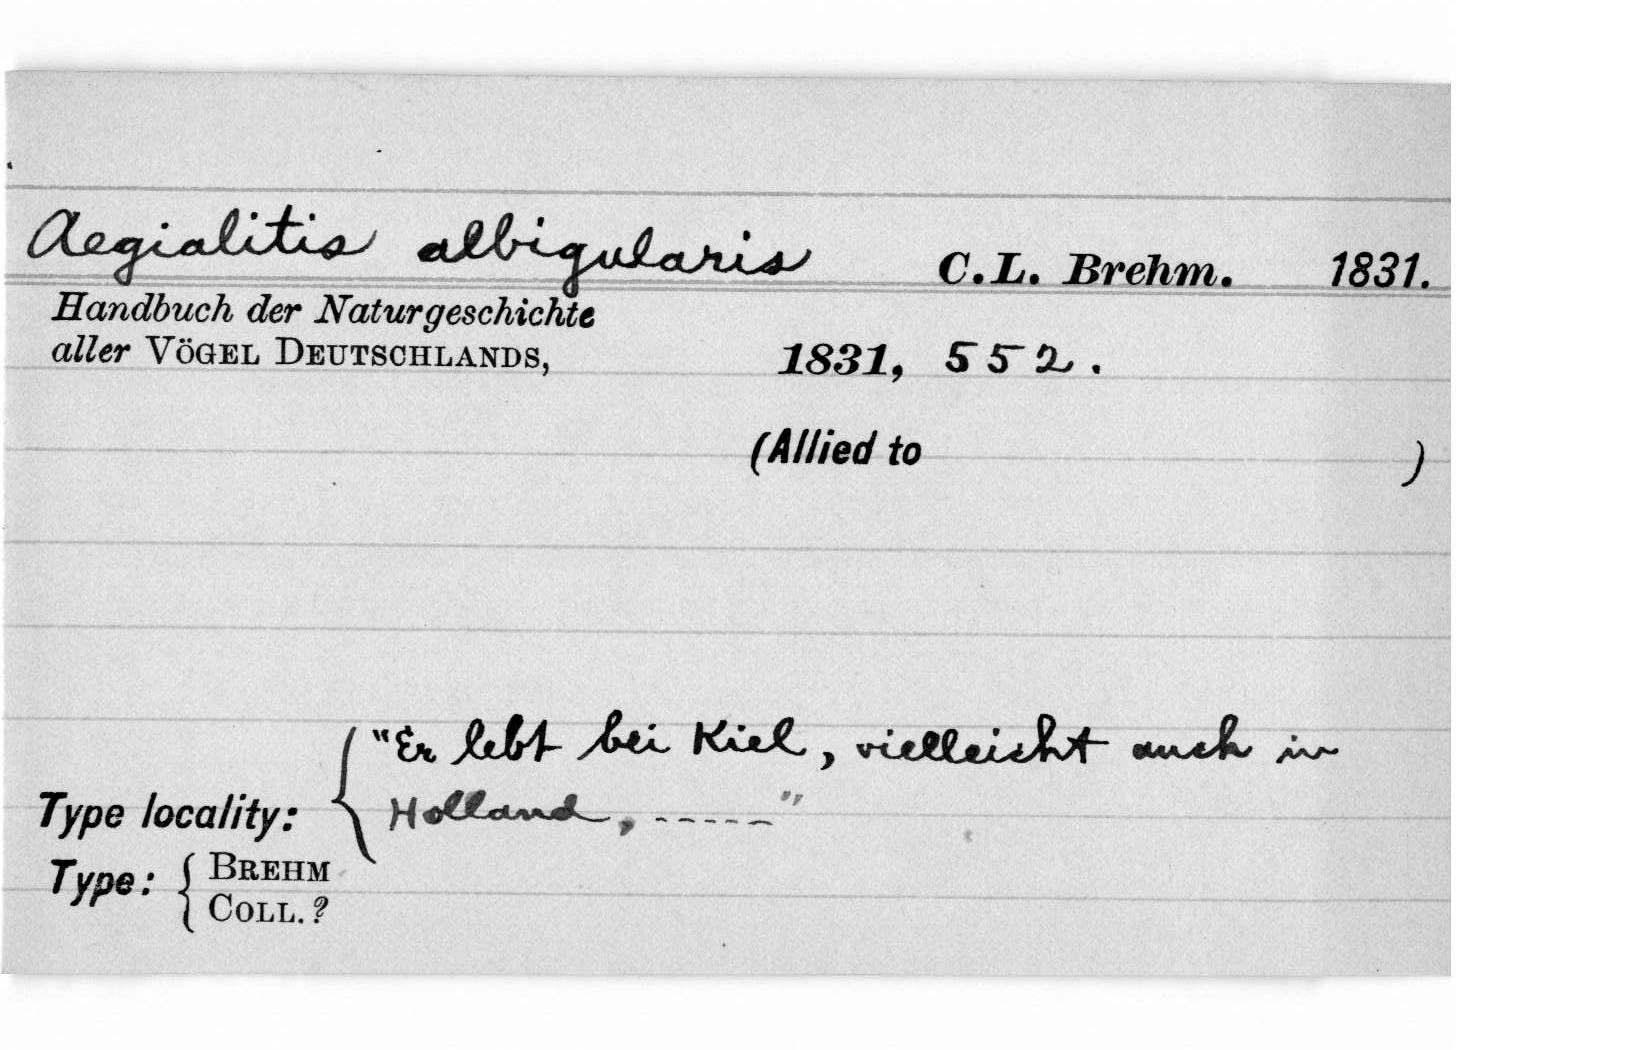 Aegialitis albigularis C.L. Brehm. 1831.
Handbuch der Naturgeschichte
aller VÖGEL DEUTSCHLANDS, 1831, 552.
(Allied to )
"Er lebt bei Kiel, vielleicht auch in
Type locality: Holland, -----"
Type: BREHM
COLL.?